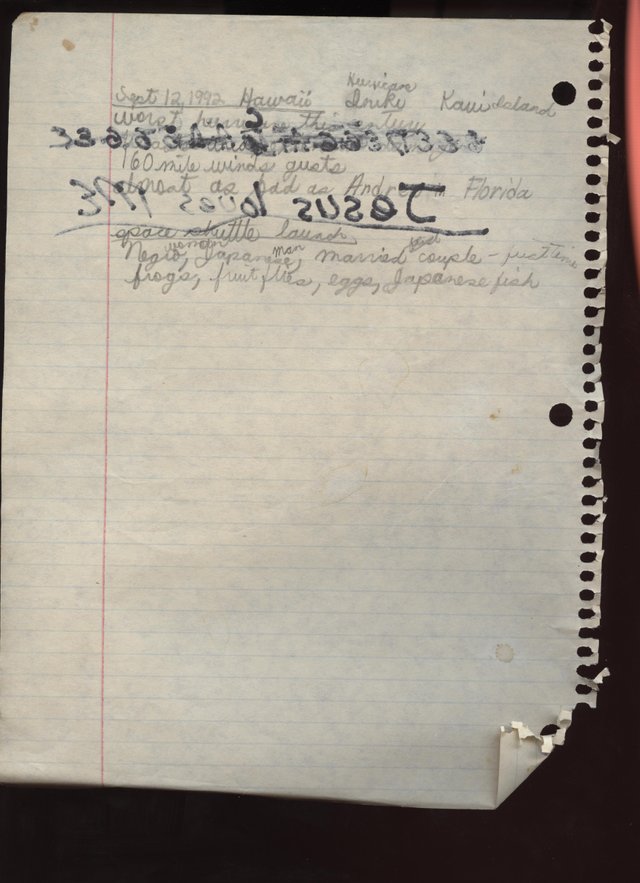 Sept 12, 1992 Hawaii Hurricane Iniki Kauii Island
worst hurricane this century
160 mile winds gusts
almost as bad as Andrew in Florida
Jesus loves me
space shuttle launch
Negro woman, Japanese man, married couple - first time
frogs, fruit flies, eggs, Japanese fish